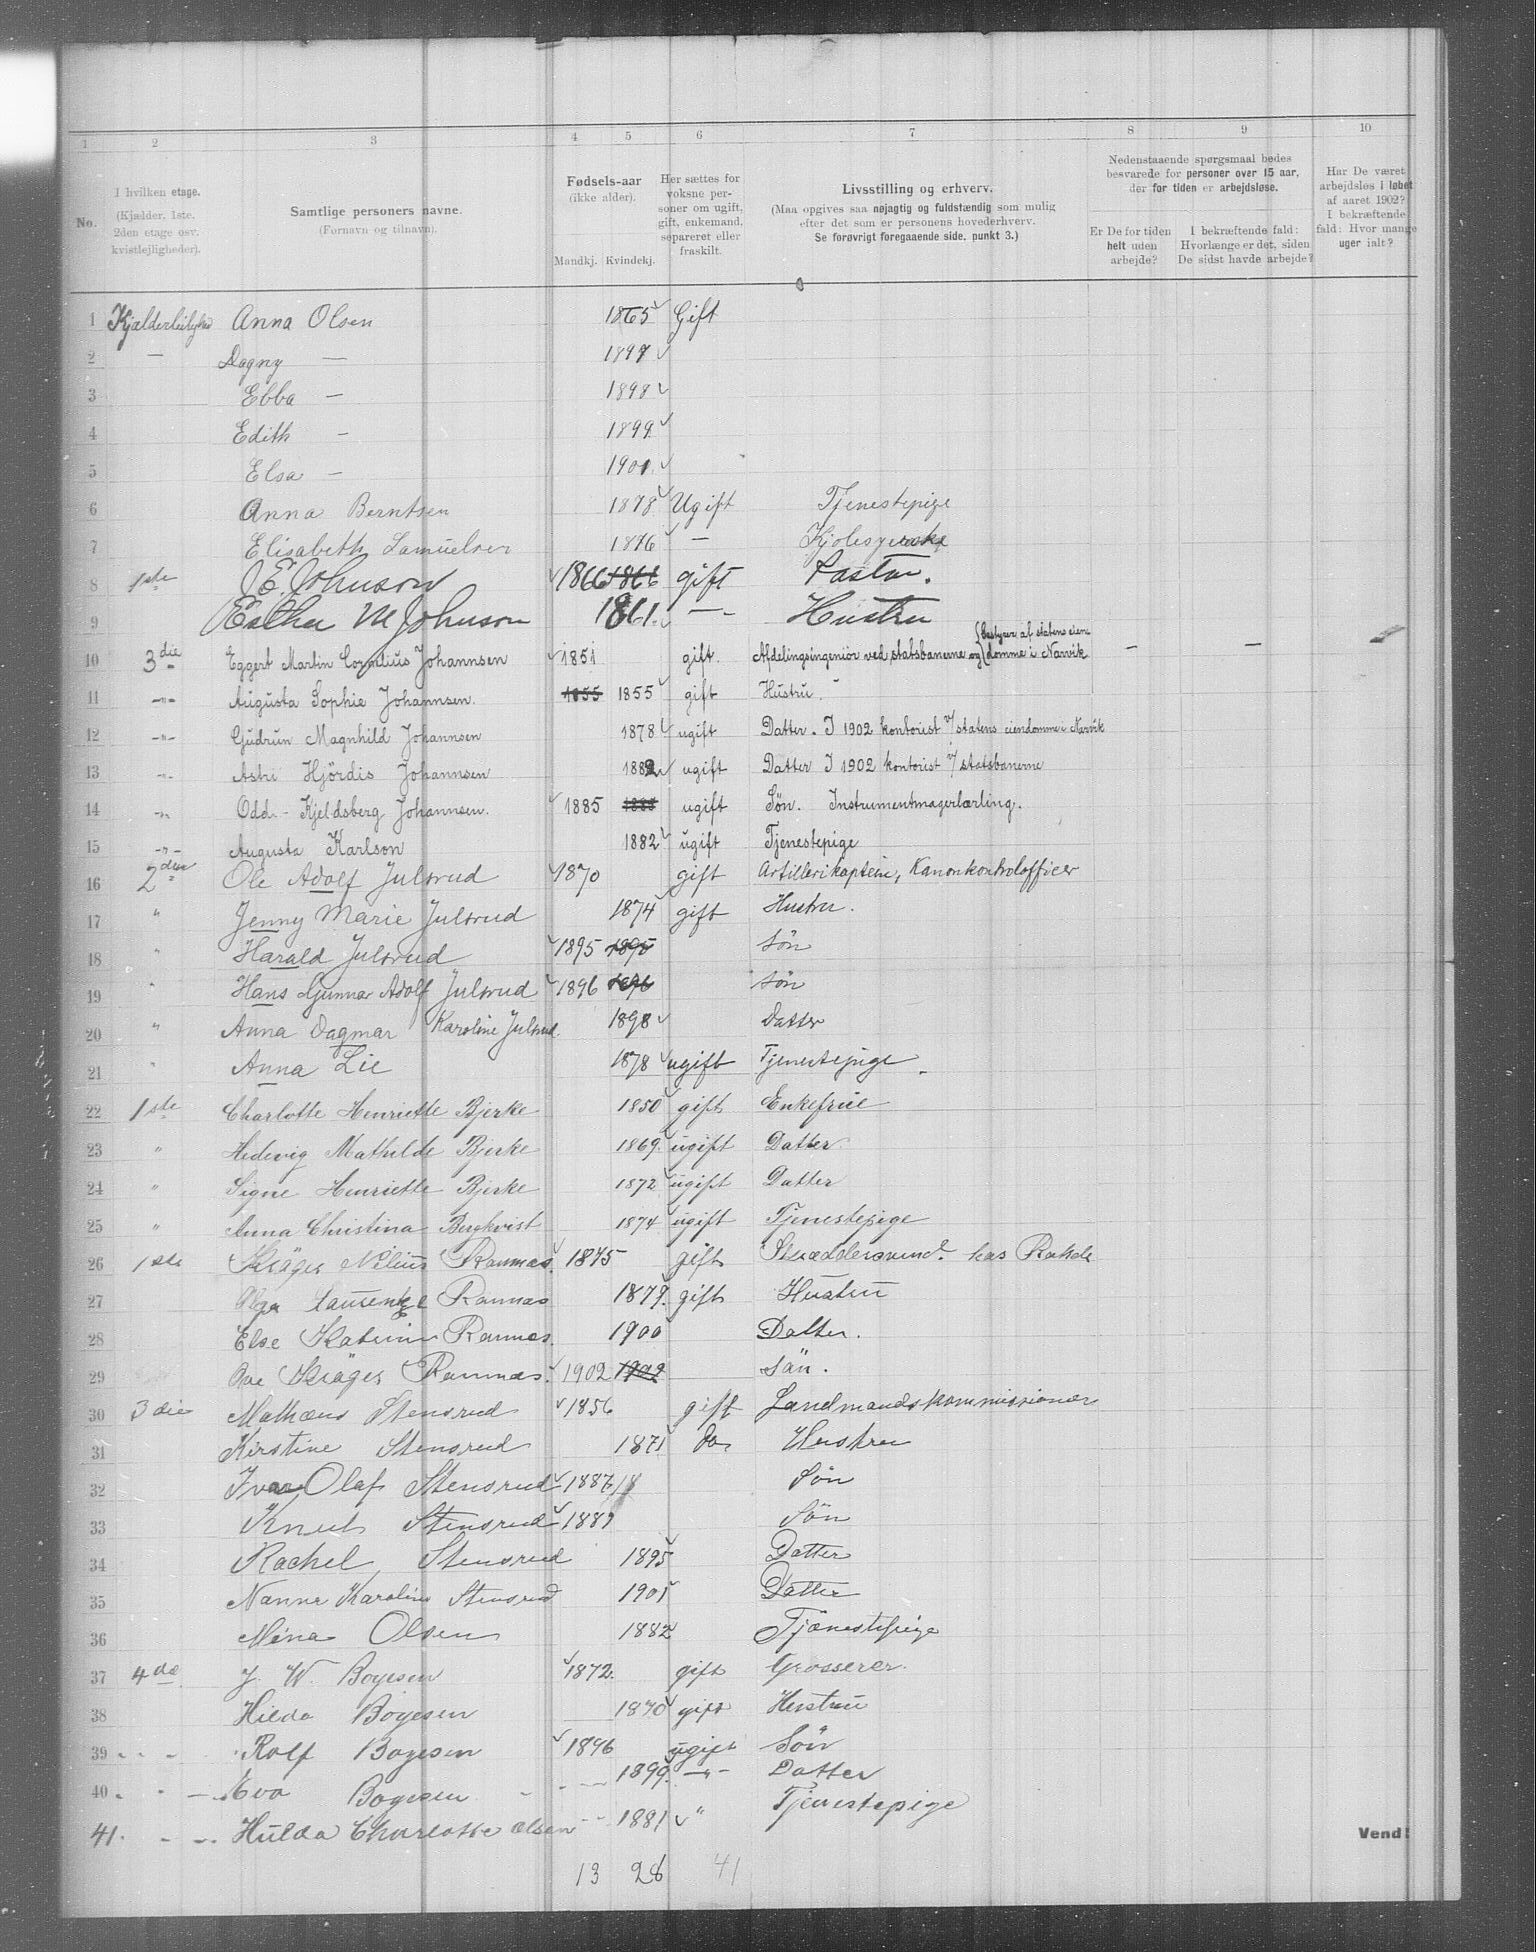 1 2 3 4 5 6 7 8 9 10
No.
I hvilken etage. (Kjælder, 1ste, 2den etage osv. kvistlejligheder).
Samtlige personers navne. (Fornavn og tilnavn).
Fødsels-aar (ikke alder). Mandkj. Kvindekj.
Her sættes for voksne personer om ugift, gift, enkemand, separeret eller fraskilt.
Livsstilling og erhverv. (Maa opgives saa nøjagtig og fuldstændig som mulig efter det som er personens hovederhverv. Se forøvrigt foregaaende side, punkt 3.)
Nedenstaaende spørgsmaal bedes besvarede for personer over 15 aar, der for tiden er arbejdsløse.
Er De for tiden helt uden arbejde?
I bekræftende fald: Hvorlænge er det, siden De sidst havde arbejde?
Har De været arbejdsløs i løbet af aaret 1902? I bekræftende fald: Hvor mange uger ialt?
1 Anna Olsen 1865 Gift
2 — Dagny — 1897
3 Ebba — 1898
4 Edith — 1899
5 Elsa — 1901
6 Anna Berntsen 1878 Ugift Tjenestepige
7 Elisabeth Samuelsen 1876 —
8 1ste J E. Johnson 1866 1866 gift Pastor.
9 Esther M Johnson 1861. — Hustru
10 3die Eggert Martin Cornelius Johannsen 1851 gift. Afdelingsingeniör ved statsbanerne og (bestyrer af statens eiendomme i Narvik — — —
11 -"- Augusta Sophie Johannsen. 1855 1855 gift Hustru.
12 -"- Gudrun Magnhild Johannsen 1878 ugift Datter. I 1902 kontorist v/ statens eiendomme i Narvik
13 -"- Astri Hjördis Johannsen 1882 ugift Datter I 1902 kontorist v/ statsbanerne
14 -"- Odd - Kjeldsberg Johannsen. 1885 1885 ugift Søn. Instrumentmagerlærling.
15 -"- Augusta Karlson 1882 ugift Tjenestepige
16 2den Ole Adolf Julsrud 1870 gift Artillerikaptein, Kanonkontrolofficer
17 " Jenny Marie Julsrud 1874 gift Hustru.
18 " Harald Julsrud 1895 1895 Søn
19 " Hans Gunnar Adolf Julsrud 1896 1896 Søn
20 " Anna Dagmar Karoline Julsrud 1898 Datter
21 " Anna Lie 1878 ugift Tjenestepige.
22 1ste Charlotte Henriette Bjerke 1850 gift Enkefrue
23 " Hedevig Mathilde Bjerke 1869. ugift Datter
24 " Signe Henriette Bjerke 1872 ugift Datter
25 " Anna Christina Bergkvist 1874 ugift Tjenestepige
26 1ste Nilius Ramnæs. 1875 gift Skræddersvend. hos
27 Olga Ramnæs 1879. gift Hustru
28 Else Ramnæs. 1900 Datter.
29 Ramnæs. 1902 1902 Sön.
30 3die Mathæus Stensrud 1856 gift Landmandskommissionær
31 Kirstine Stensrud 1871 do Hustru
32 Ivar Olaf Stensrud 1887 Søn
33 Knut Stensrud 1889 Søn
34 Rachel Stensrud 1895 Datter
35 Nanna Karoline Stensrud 1901 Datter
36 Mina Olsen 1882 Tjænestepige
37 4de J. W. Boyesen 1872. gift Grosserer.
38 Hilda Boyesen 1870 gift Hustru
39 - - - Rolf Boyesen 1896 ugift Søn
40 - - - Eva Boyesen 1899. -"- Datter
41. - - Hulda Charlotte Olsen 1881 " Tjenestepige
Vend!
13 28 41